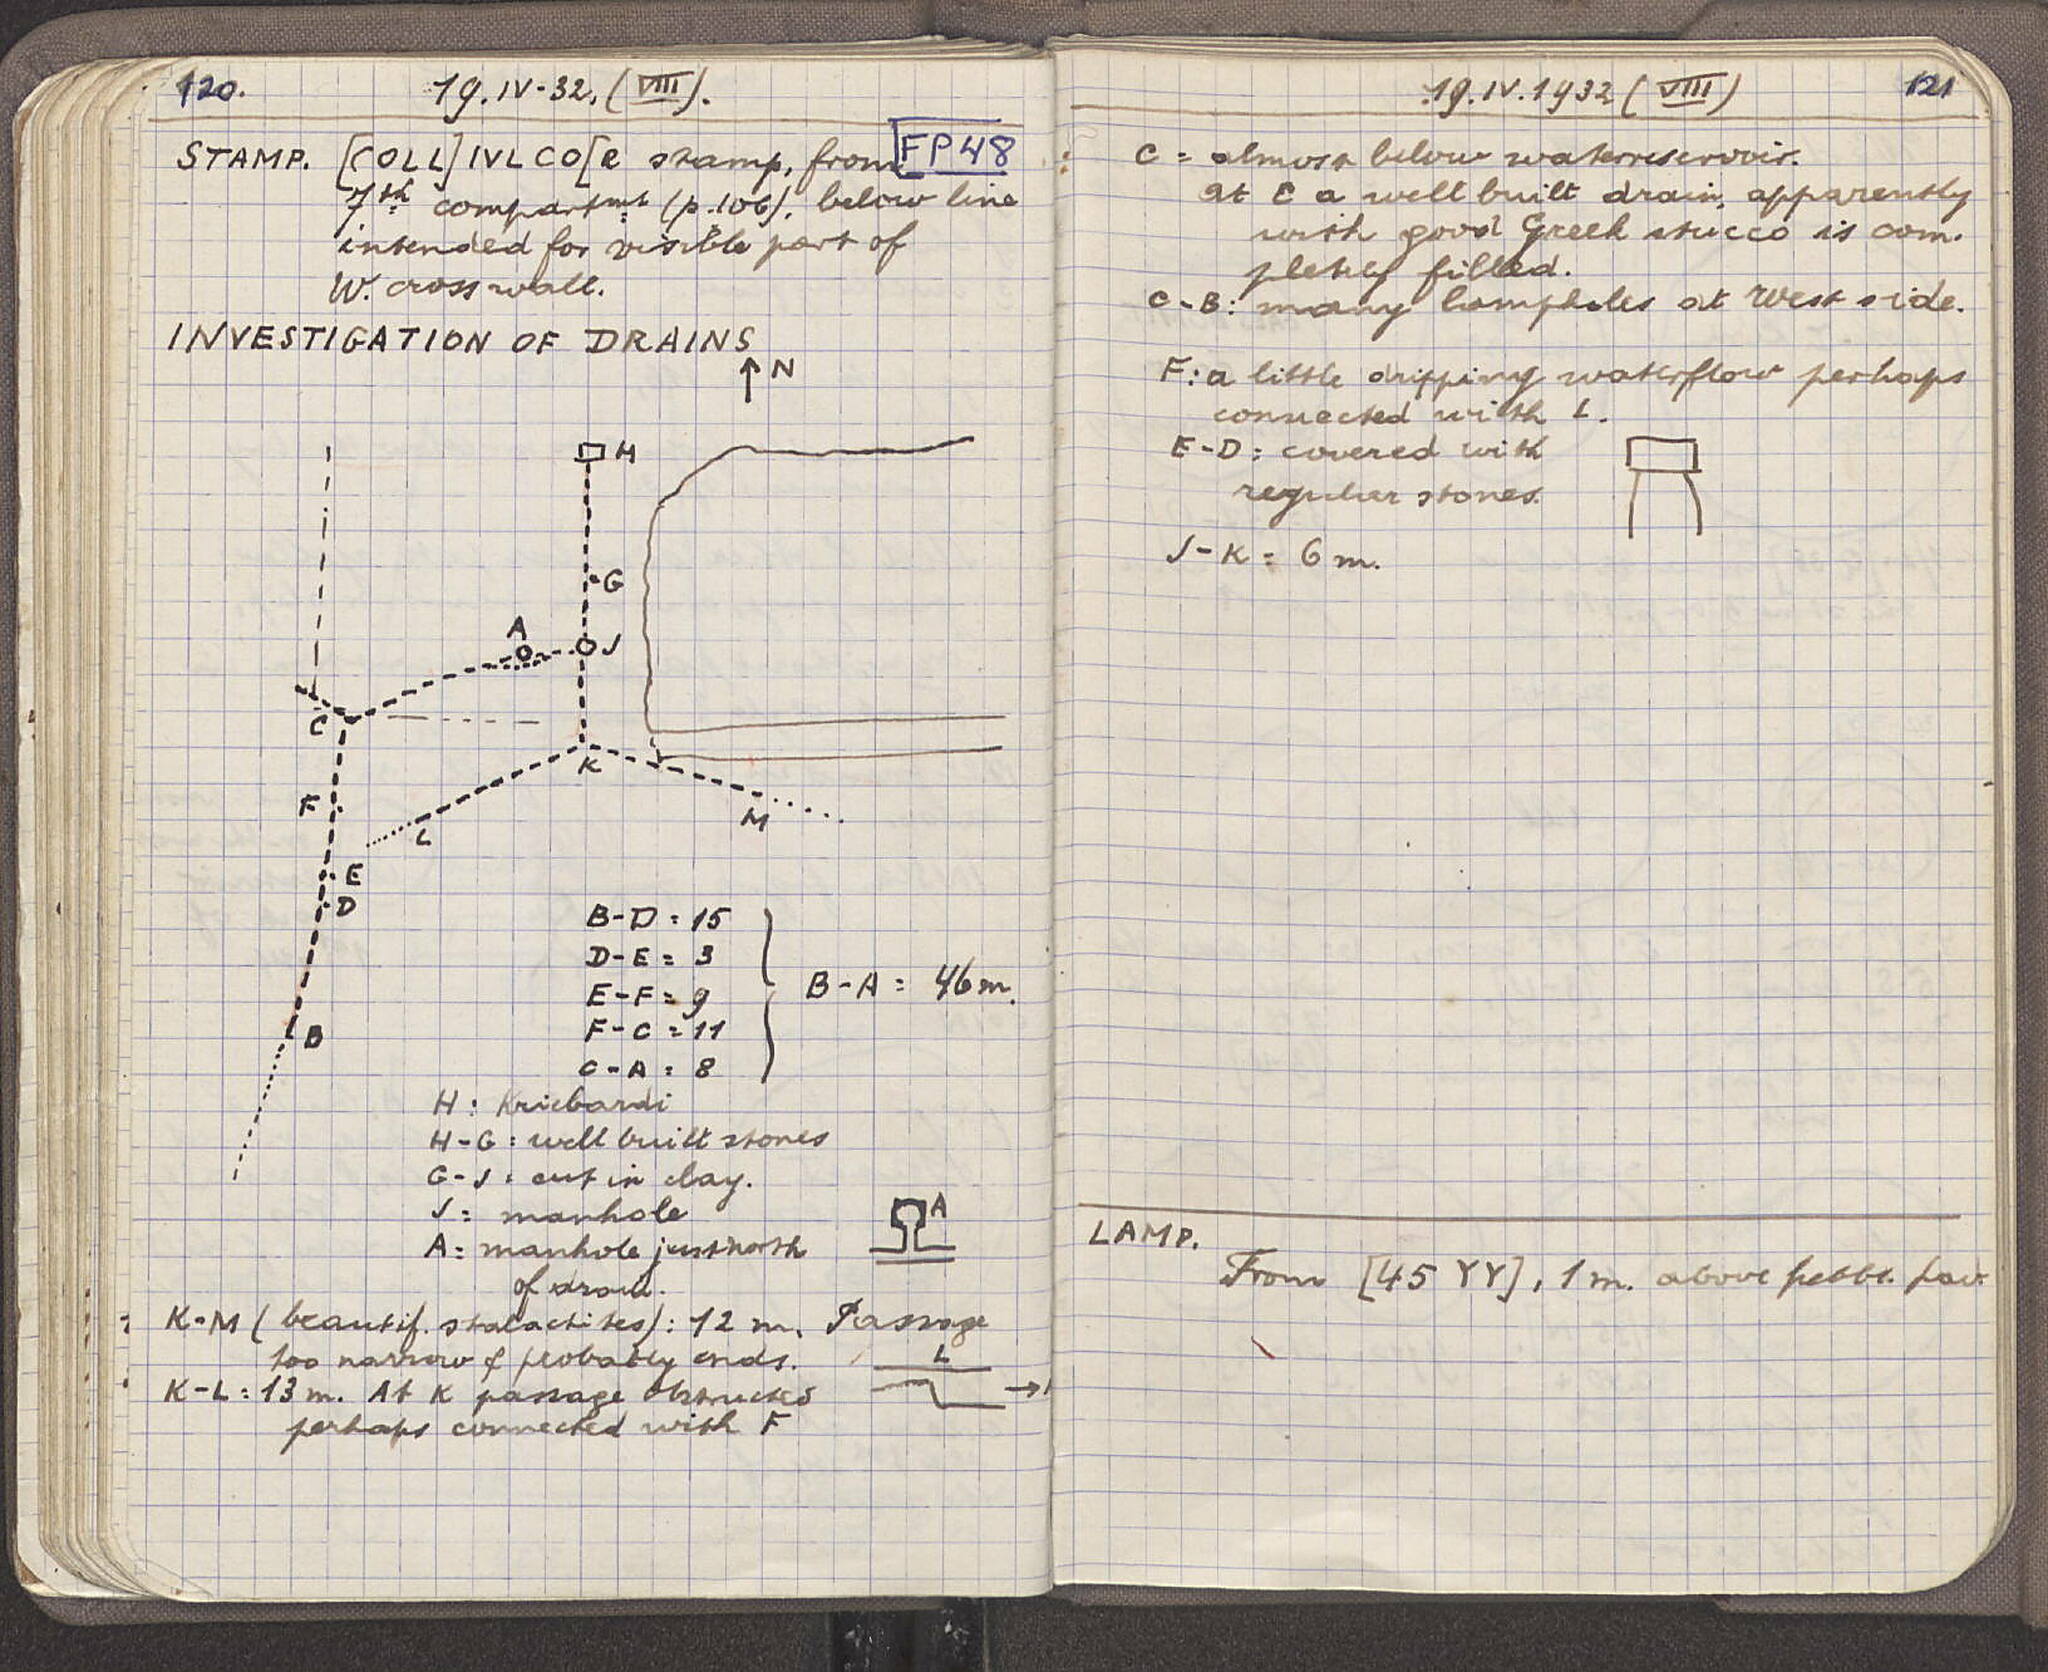 120.
19.IV-32. (VIII).
STAMP. [COLL] IVL CO[R stamp, from FP48
7th compartmt (p.106), below line
intended for visible part of
W. crosswall.
INVESTIGATION OF DRAINS
↑ N
H
G
A
J
C
K
F
L
M
E
D
B
B-D = 15
D-E = 3
E-F = 9
F-C = 11
C-A = 8
B-A = 46 m.
H: Kriebardi
H-G: well built stones
G-J: cut in clay.
J = manhole
A = manhole just north
of drain.
A
K-M (beautif. stalactites): 12 m. Passage
too narrow & probably ends.
K-L = 13 m. At K passage obstructed
perhaps connected with F
L
→
19.IV.1932 (VIII)
121
C = almost below waterreservoir.
At C a well built drain, apparently
with good Greek stucco is com-
pletely filled.
C-B: many lampholes at West side.
F: a little dripping waterflow perhaps
connected with L.
E-D: covered with
regular stones.
J-K = 6 m.
LAMP.
From [45 YY], 1 m. above pebbl. pav.